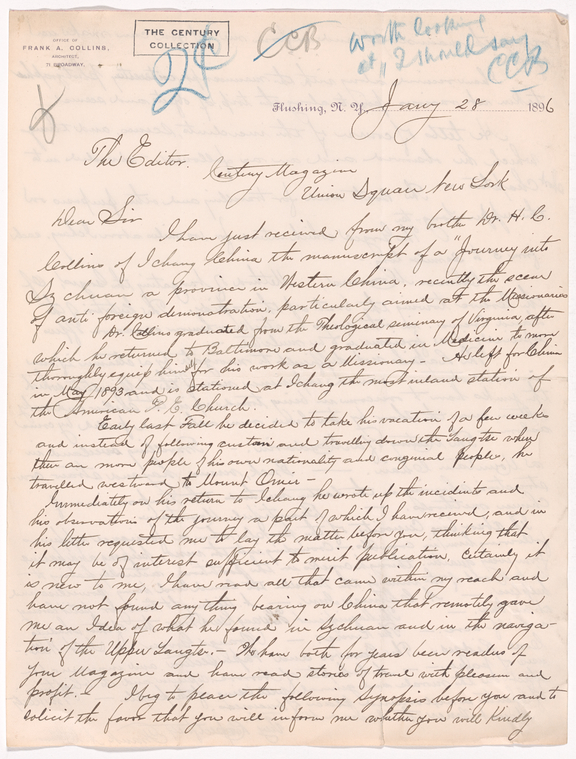 OFFICE OF
FRANK A. COLLINS,
ARCHITECT,
71 BROADWAY,
THE CENTURY
COLLECTION
CCB
worth looking
at, I should say
CCB
Flushing, N. Y. Jany 28 1896
The Editor.
Century Magazine
Union Square New York
Dear Sir
I have just recieved from my brother Dr. H. C.
Collins of Ichang China the manuscript of a "Journey into
Sz chuan a province in Western China, recently the scene
of anti foreign demonstration, particularly aimed at the Missionaries
Dr. Collins graduated from the Theological seminary of Virginia, after
which he returned to Baltimore and graduated in Medicine to more
thoroughly equip himself for his work as a Missionary - He left for China
in May 1893 and is stationed at Ichang the most inland station of
the American P. E. Church.
Early last Fall he decided to take his vacation of a few weeks
and instead of following custom and travelling down the Yangtse where
ther are more people of his own nationality and congenial people, he
travelled westward to Mount Omei -
Immediately on his return to Ichang he wrote up the incidents and
his observations of the journey a part of which I have received, and in
his letter requested me to lay the matter before you, thinking that
it may be of interest sufficient to merit publication. Certainly it
is new to me, I have read all that came within my reach and
have not found anything bearing on China that remotely gave
me an Idea of what he "found" in Szchuan and in the naviga-
tion of the Upper Yangtse. - We have both for years been readers of
your Magazine and have read stories of travel with pleasure and
profit. - I beg to place the following Synopsis before you and to
solicit the favor that you will inform me whether you will kindly